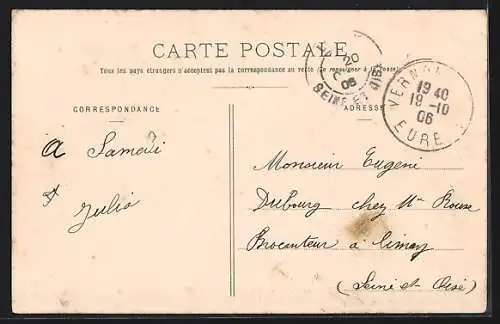 CARTE POSTALE
Tous les pays étrangers n'acceptent pas la correspondance au verso (Se renseigner à la Poste)
20
06
SEINE ET OISE
VERNON
19 40
19-10
06
EURE
CORRESPONDANCE
ADRESSE
A Samedi
Julia
Monsieur Eugène
Dubourg chez Mr Rousse
Brocanteur à Limay
(Seine et Oise)